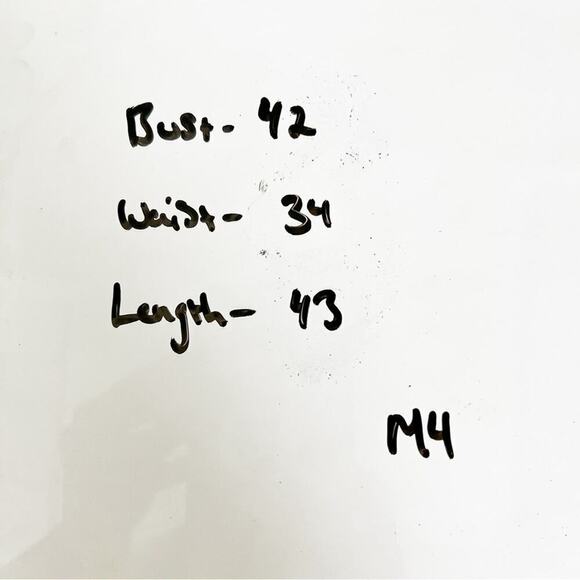 Bust- 42
Waist- 34
Length- 43
M4